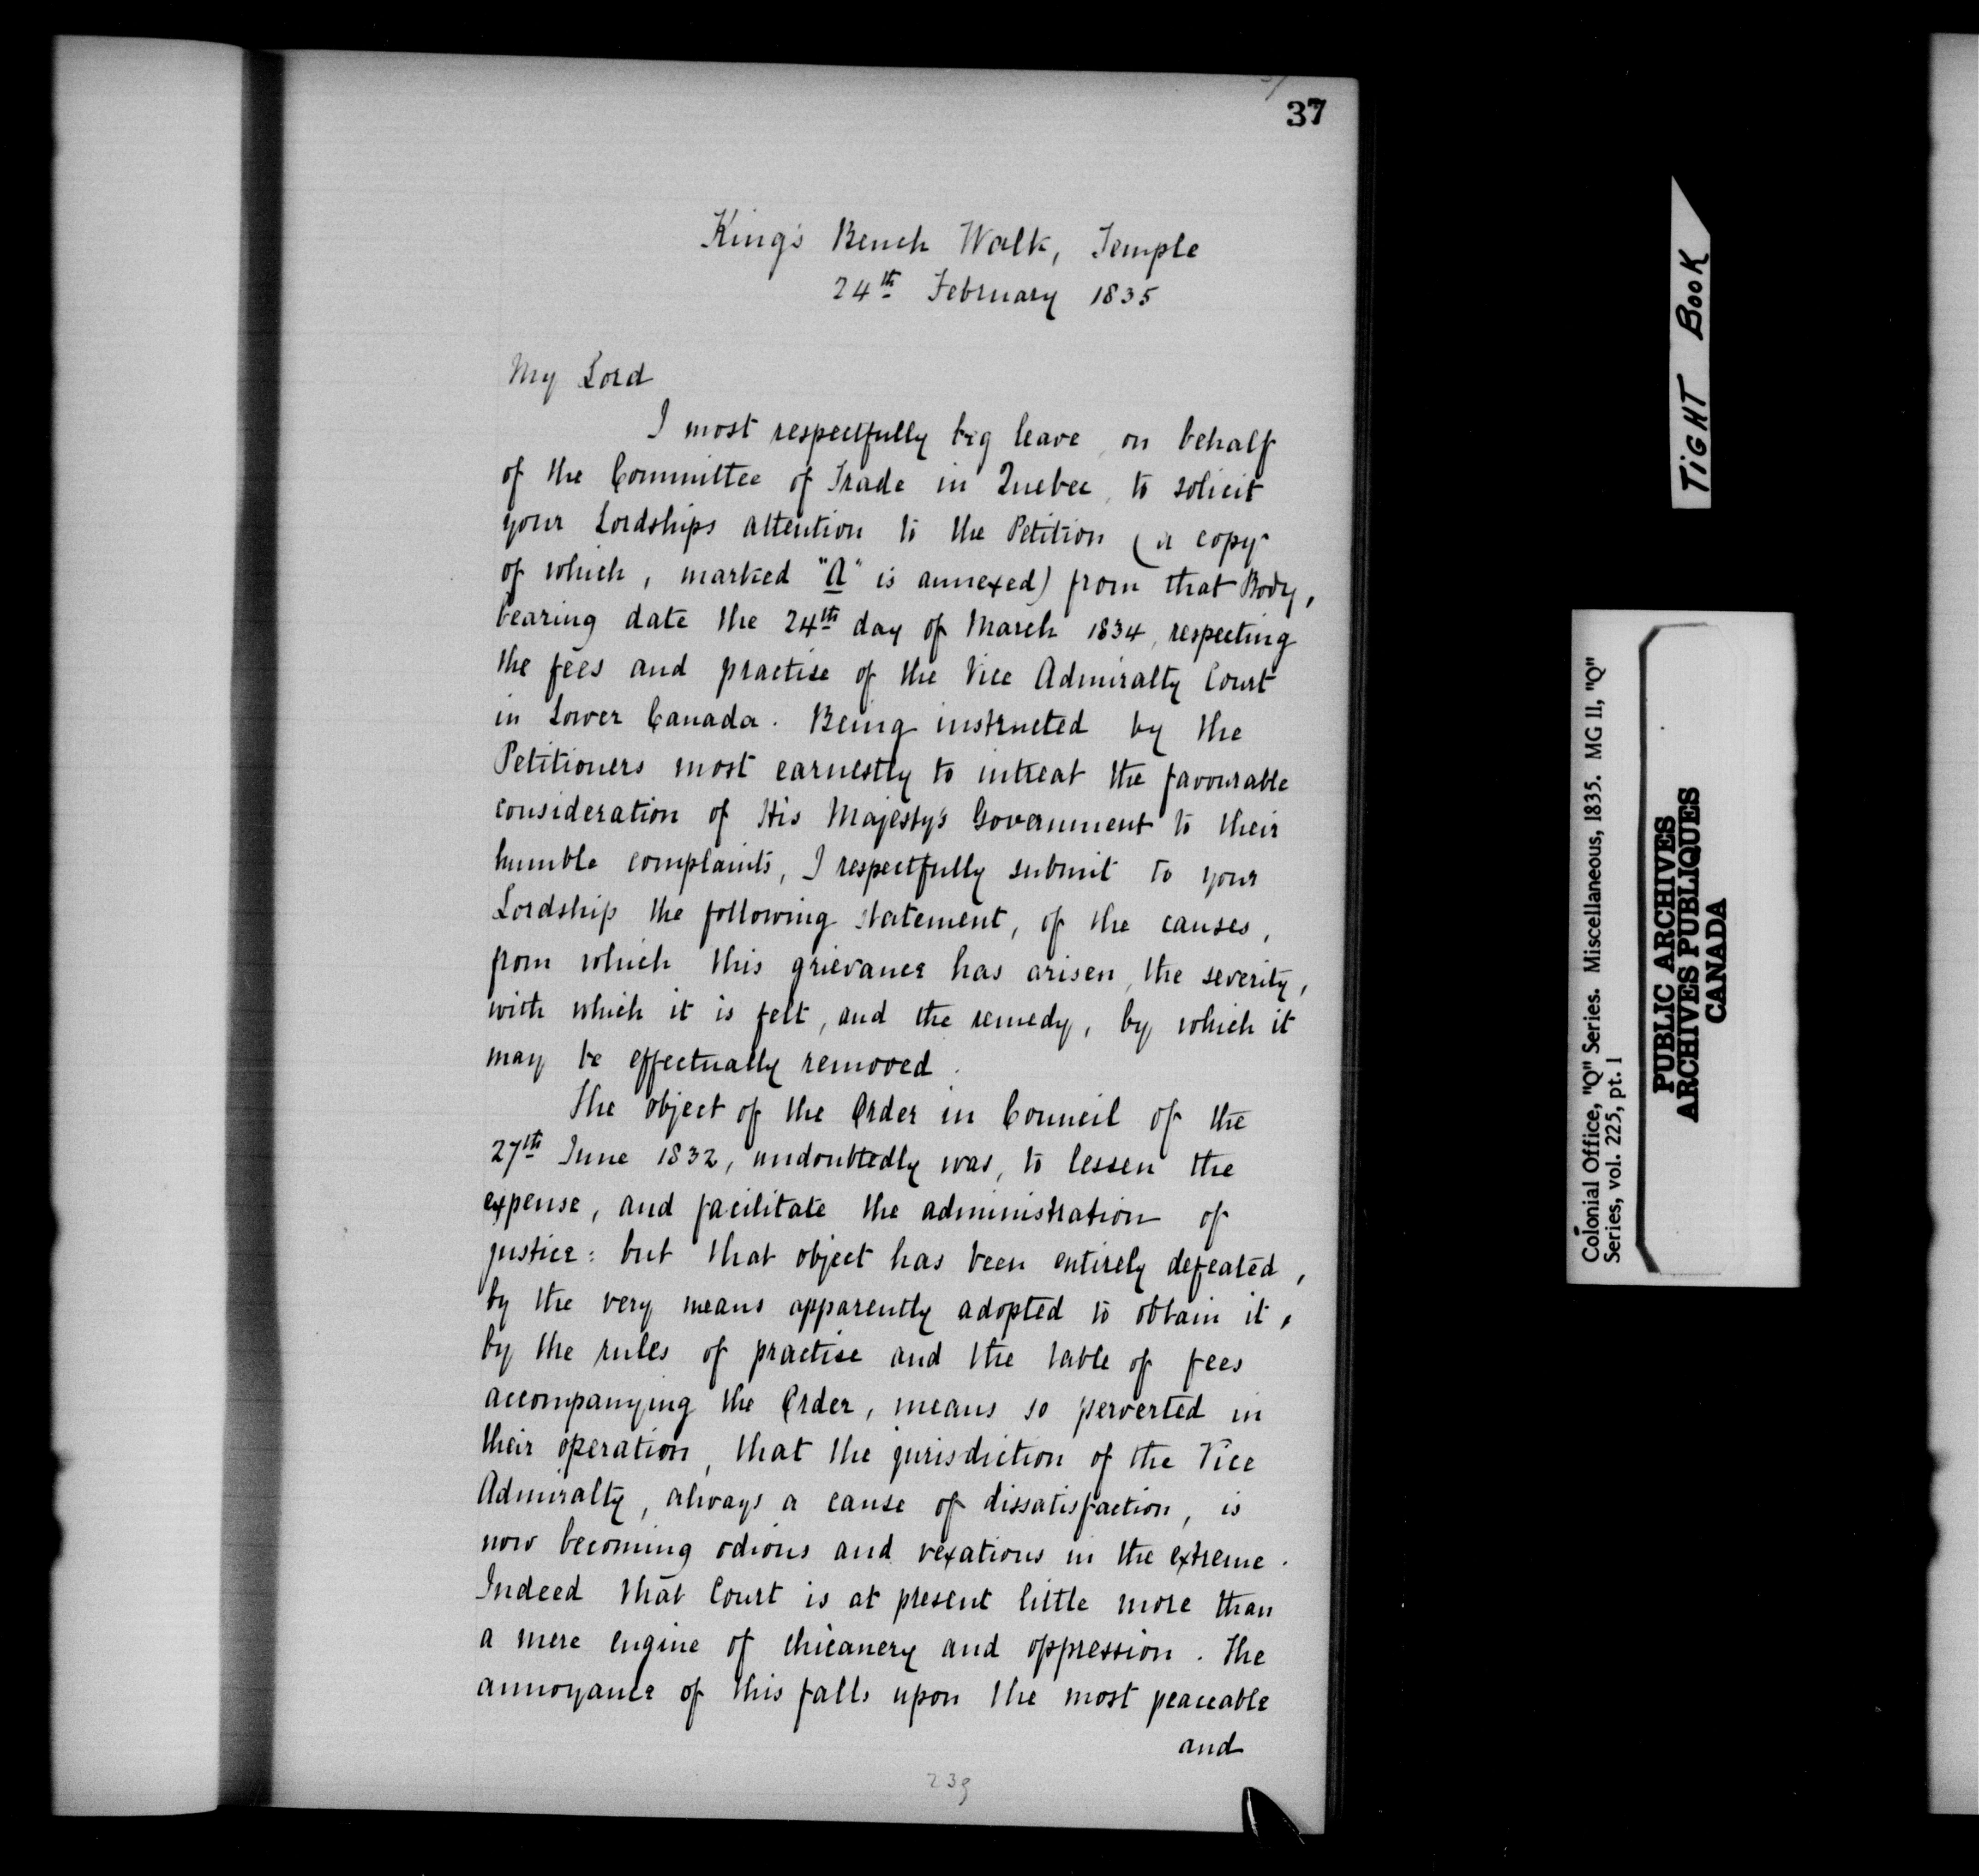 37
King's Bench Walk, Temple
24th February 1835
My Lord
I most respectfully beg leave, on behalf
of the Committee of Trade in Quebec, to solicit
your Lordships attention to the Petition (a copy
of which, marked "A" is annexed) from that Body,
bearing date the 24th day of March 1834, respecting
the fees and practise of the Vice Admiralty Court
in Lower Canada. Being instructed by the
Petitioners most earnestly to intreat the favourable
consideration of His Majesty's Government to their
humble complaints, I respectfully submit to your
Lordship the following statement, of the causes,
from which this grievance has arisen, the severity,
with which it is felt, and the remedy, by which it
may be effectually removed.
The object of the Order in Council of the
27th June 1832, undoubtedly was, to lessen the
expense, and facilitate the administration of
justice: but that object has been entirely defeated,
by the very means apparently adopted to obtain it,
by the rules of practise and the table of fees
accompanying the Order, means so perverted in
their operation, that the jurisdiction of the Vice
Admiralty, always a cause of dissatisfaction, is
now becoming odious and vexatious in the extreme.
Indeed that Court is at present little more than
a mere engine of chicanery and oppression. The
annoyance of this falls upon the most peaceable
and
239
TIGHT BOOK
Colonial Office, "Q" Series. Miscellaneous, 1835. MG 11, "Q"
Series, vol. 225, pt. 1
PUBLIC ARCHIVES
ARCHIVES PUBLIQUES
CANADA